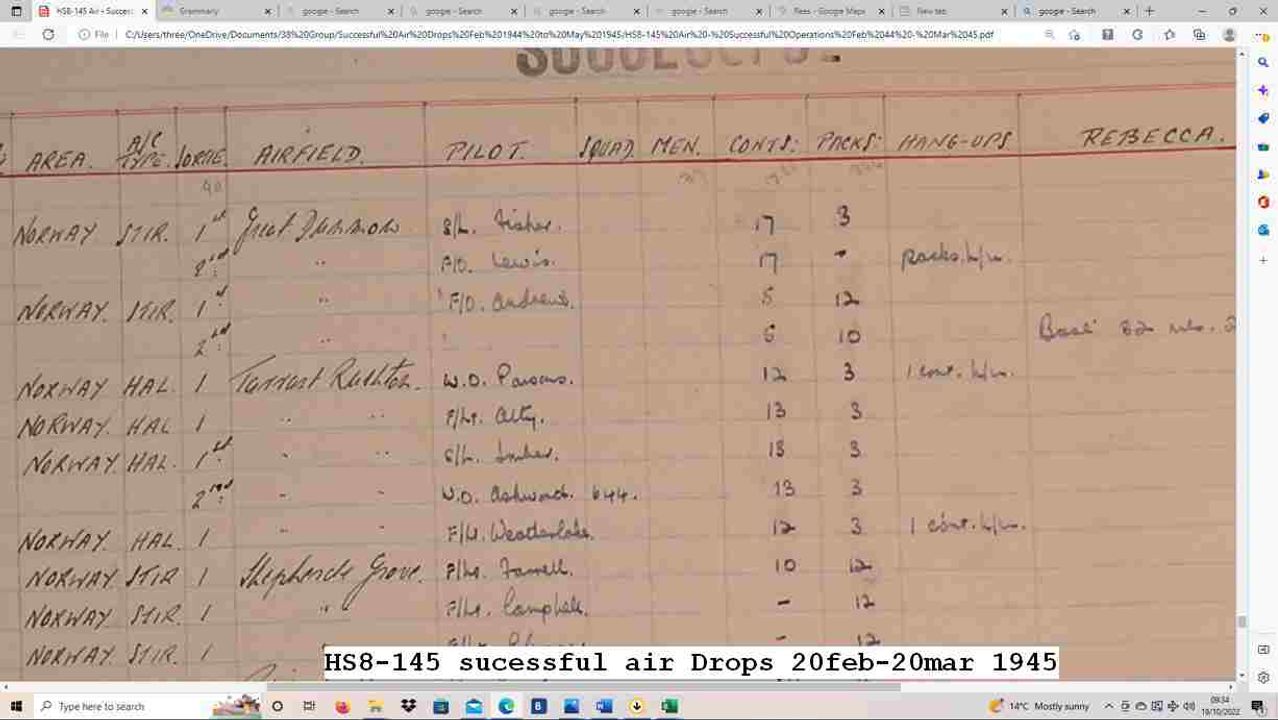 HS8-145 Air - Success
Grammarly
google - Search
google - Search
google - Search
google - Search
Rees - Google Maps
New tab
google - Search
File
C:/Users/three/OneDrive/Documents/38%20Group/Successful%20Air%20Drops%20Feb%201944%20to%20May%201945/HS8-145%20Air%20-%20Successful%20Operations%20Feb%2044%20-%20Mar%2045.pdf
AREA. A/C TYPE. SORTIE. AIRFIELD. PILOT. SQUAD. MEN. CONTS: PACKS: HANG-UPS REBECCA.
NORWAY STIR. 1st Great Dunmow S/L. Fisher. 17 3
2nd: " F/O. Lewis. 17 - packs.h/u.
NORWAY. STIR. 1st " F/O. Andrews. 12
2nd: " 10 Base
NORWAY HAL. 1 Tarrant Rushton. W.O. Parsons. 12 3 1 cont. h/u.
NORWAY. HAL 1 " " F/Lt. 13 3
NORWAY HAL. 1st " " S/L. 13 3
2nd: " " W.O. Ashworth. 644. 13 3
NORWAY. HAL. 1 " " F/Lt. 12 3 1 cont. h/u.
NORWAY. STIR 1 Shepherds Grove. F/Lt. Farrell. 10 12
NORWAY STIR. 1 " F/Lt. Campbell. - 12
NORWAY STIR. 1 - 12
HS8-145 sucessful air Drops 20feb-20mar 1945
Type here to search
14°C Mostly sunny
09:34
19/10/2022